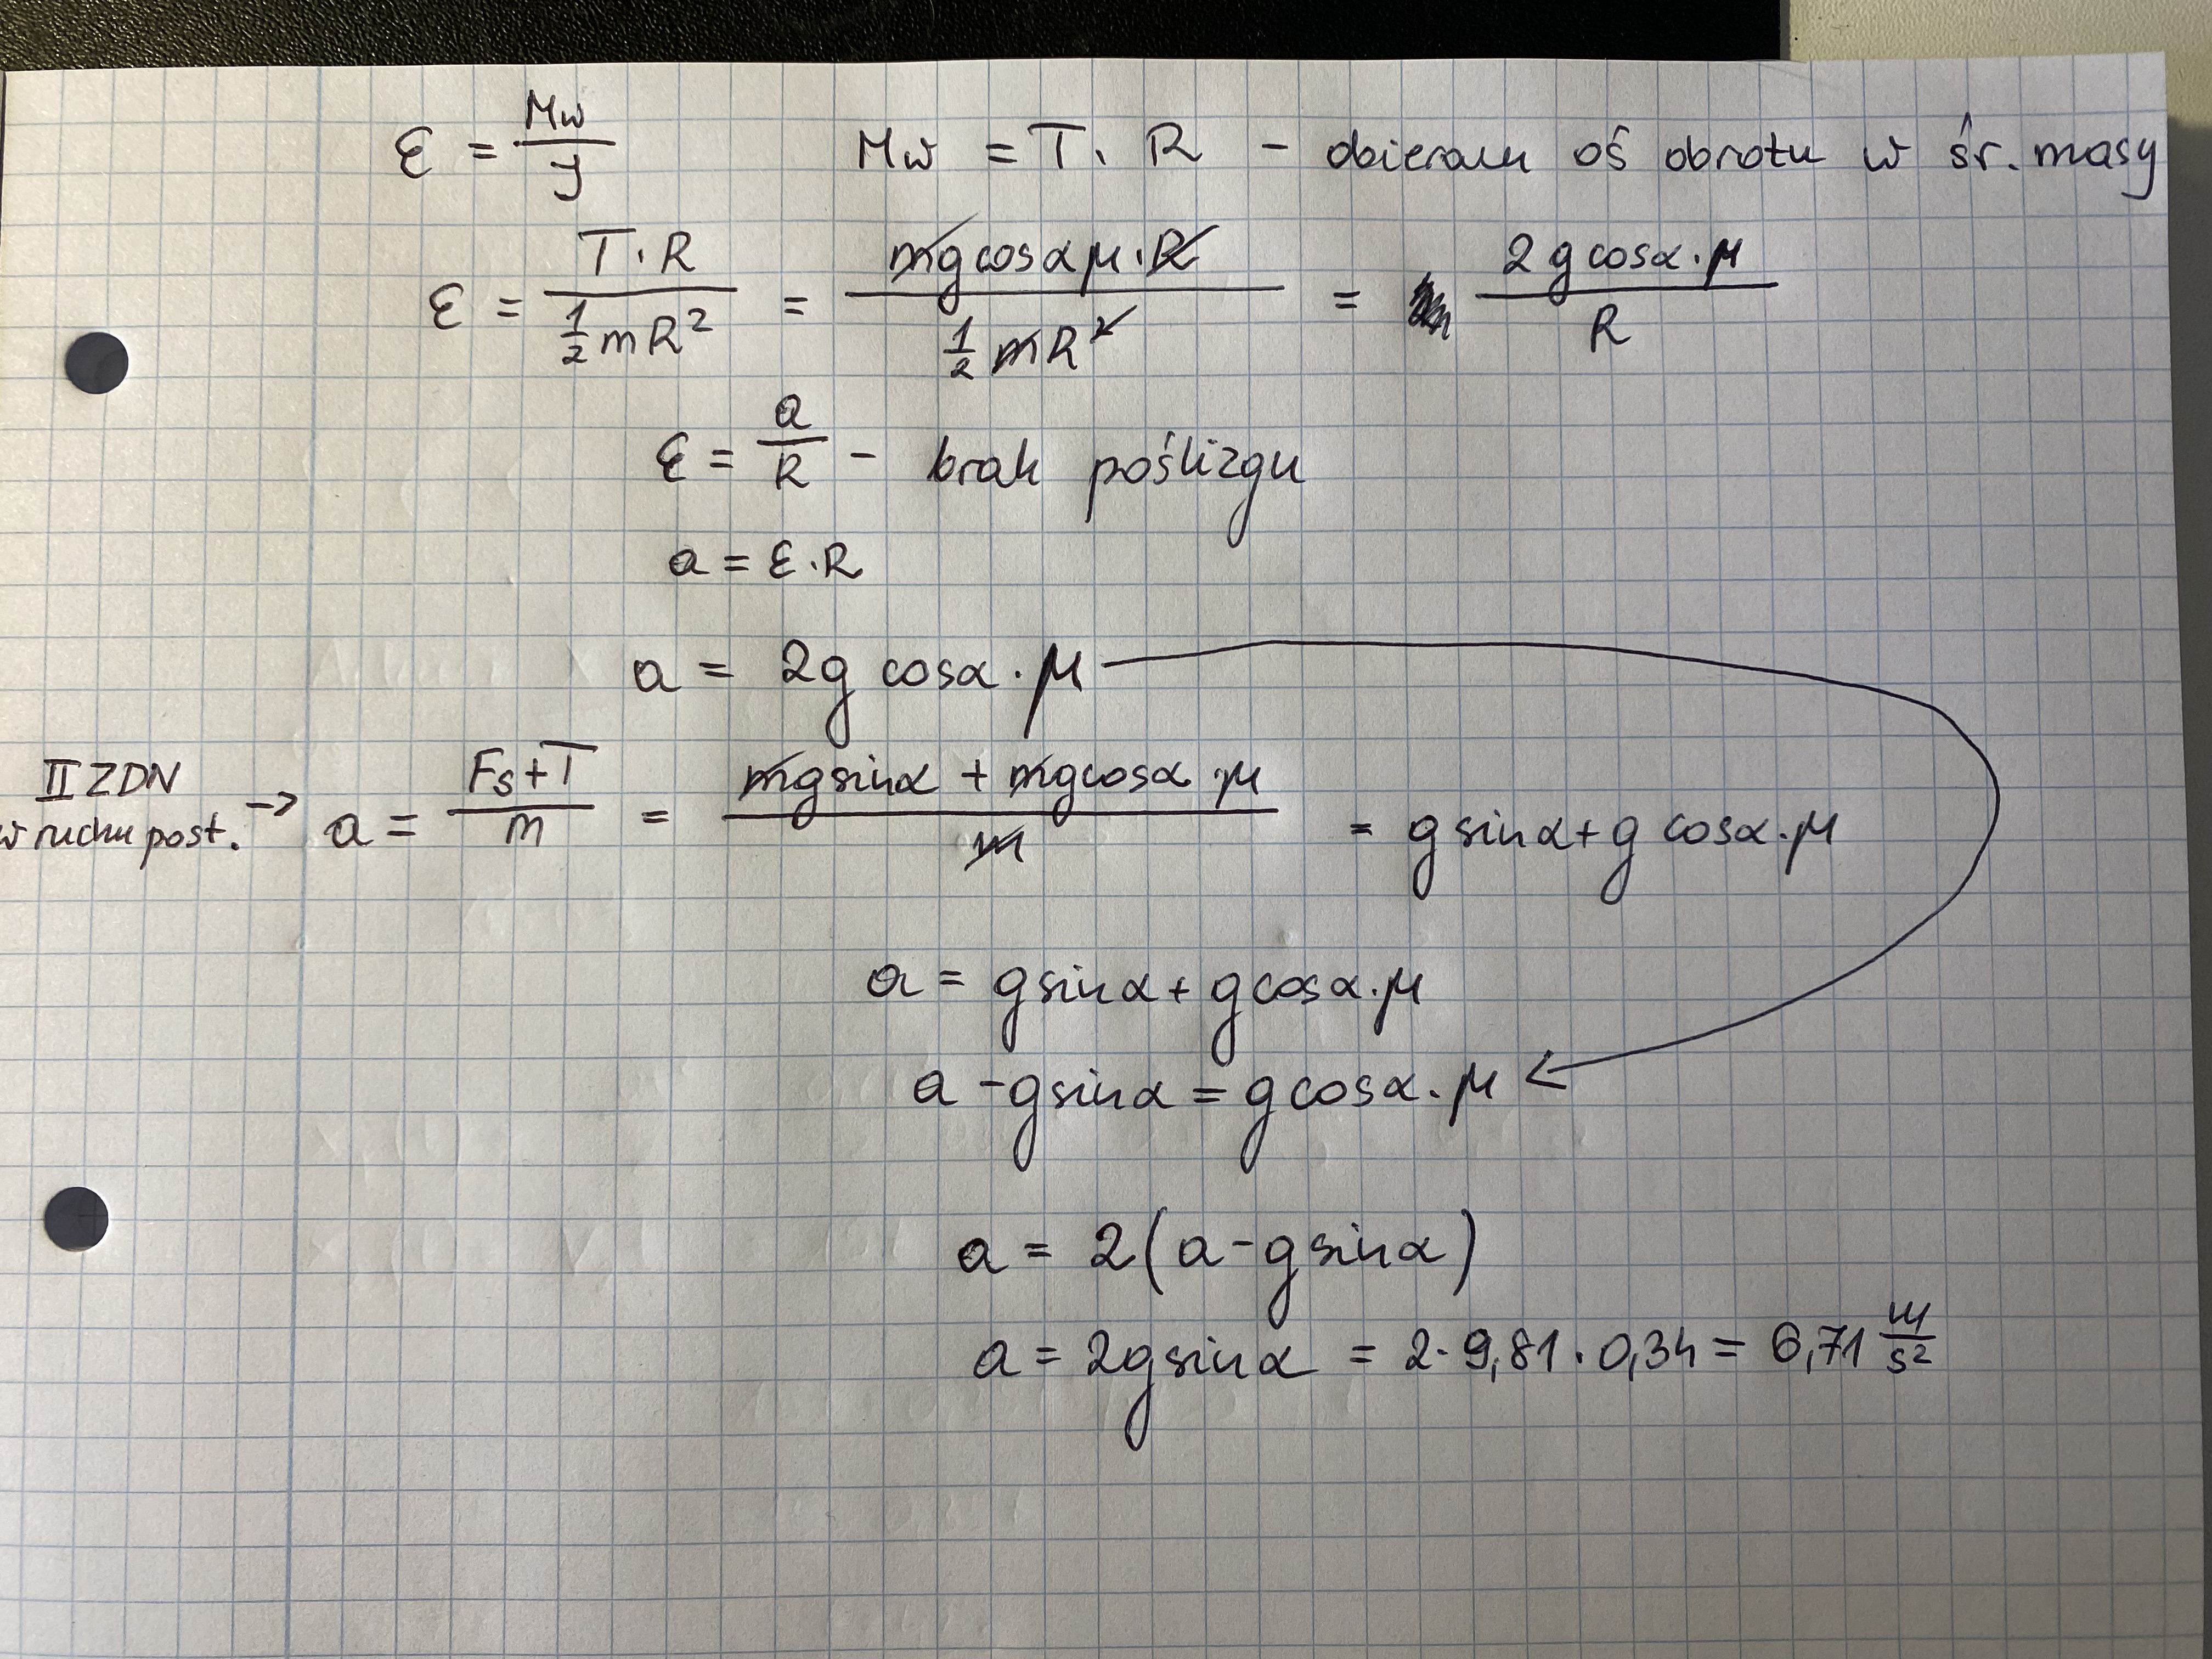 ε = Mw/J    Mw = T · R - obieram oś obrotu w śr. masy
ε = T·R / ½mR² = mg cosα μ · R / ½mR² = 2g cosα · μ / R
ε = a/R - brak poślizgu
a = ε · R
a = 2g cosα · μ
II ZDN w ruchu post. → a = Fs+T / m = mg sinα + mg cosα μ / m = g sinα + g cosα · μ
a = g sinα + g cosα · μ
a - g sinα = g cosα · μ
a = 2(a - g sinα)
a = 2g sinα = 2 · 9,81 · 0,34 = 6,71 m/s²